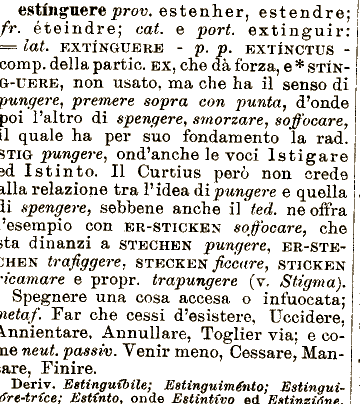 estínguere prov. estenher, estendre;
fr. éteindre; cat. e port. extinguir:
= lat. EXTÍNGUERE - p. p. EXTÍNCTUS -
comp. della partic. EX, che dà forza, e * STÍN-
G-UERE, non usato, ma che ha il senso di
pungere, premere sopra con punta, d'onde
poi l'altro di spengere, smorzare, soffocare,
il quale ha per suo fondamento la rad.
STIG pungere, ond'anche le voci Istigare
ed Istinto. Il Curtius però non crede
alla relazione tra l'idea di pungere e quella
di spengere, sebbene anche il ted. ne offra
l'esempio con ER-STICKEN soffocare, che
sta dinanzi a STECHEN pungere, ER-STE-
CHEN trafiggere, STECKEN ficcare, STICKEN
ricamare e propr. trapungere (v. Stigma).
Spegnere una cosa accesa o infuocata;
metaf. Far che cessi d'esistere, Uccidere,
Annientare, Annullare, Toglier via; e co-
me neut. passiv. Venir meno, Cessare, Man-
care, Finire.
Deriv. Estinguíbile; Estinguiménto; Estingui-
tóre-tríce; Estínto, onde Estintívo ed Estinzióne.